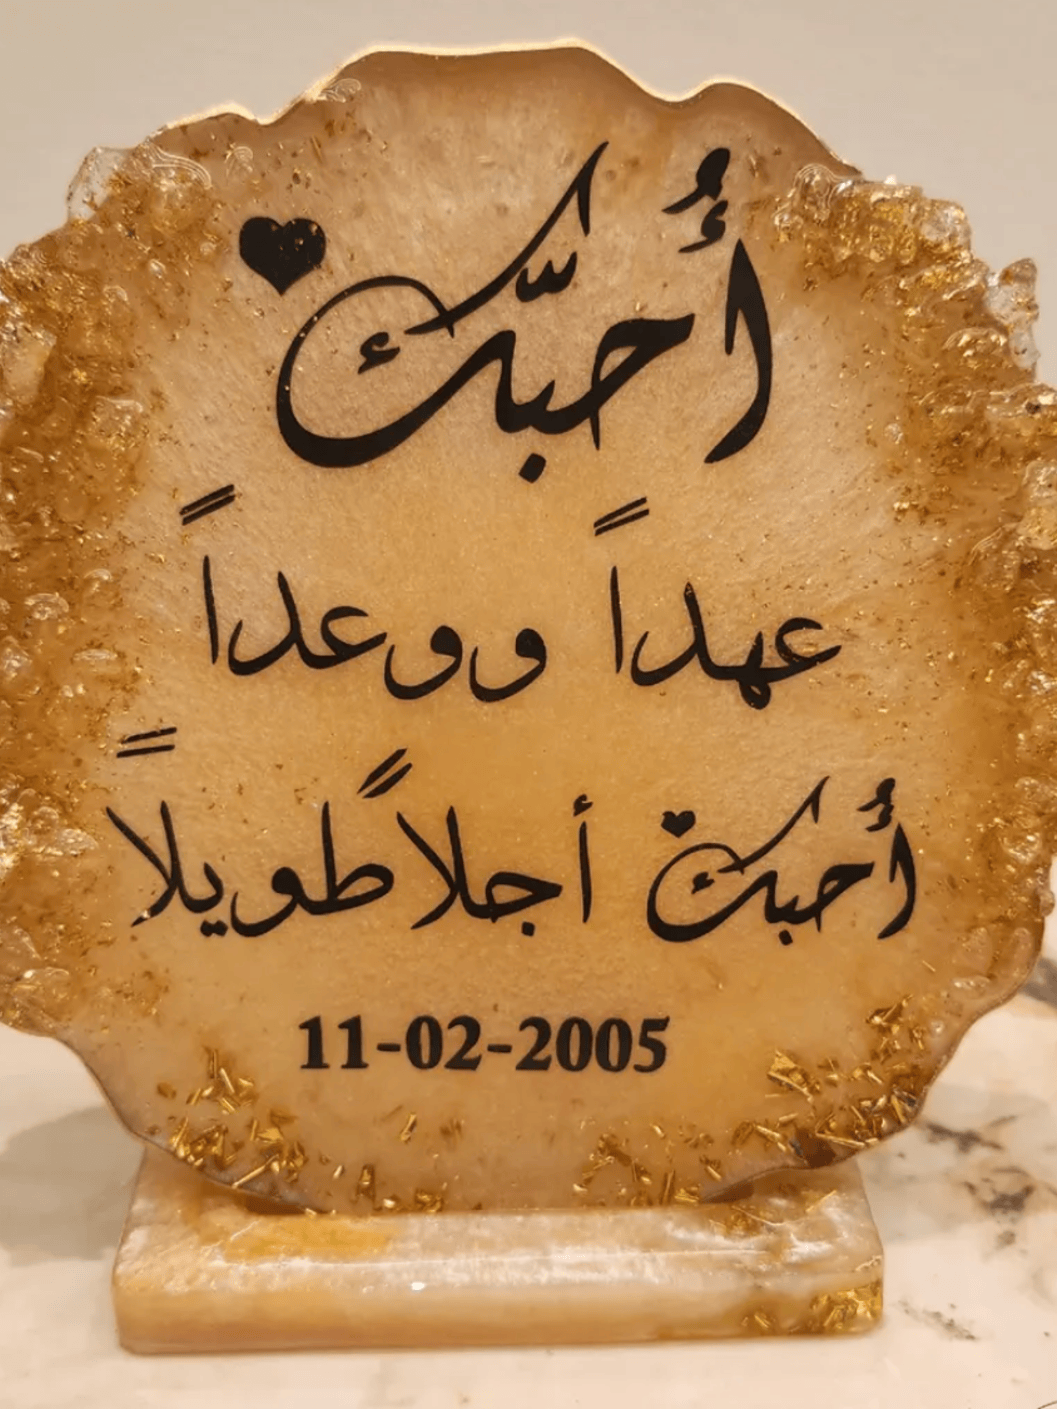 أُحبّك
عهداً ووعداً
أُحبك أجلاً طويلاً
11-02-2005